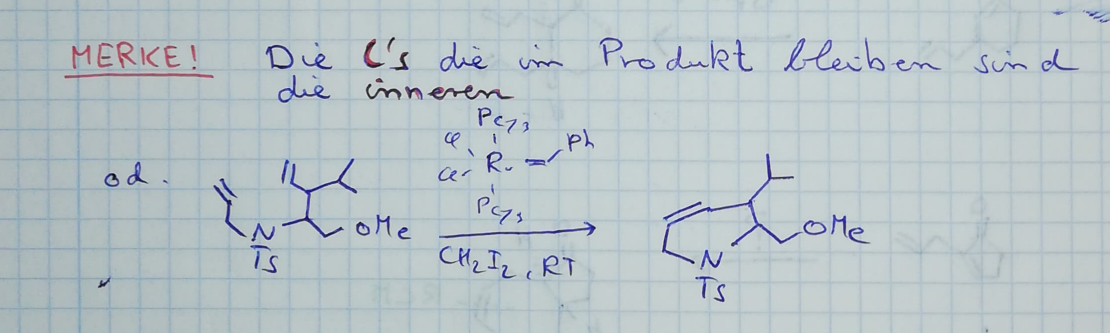 MERKE! Die C's die im Produkt bleiben sind
die inneren
PCy3
Cl
Ph
od.
Ru
Cl
PCy3
OMe
OMe
N
CH2I2, RT
N
Ts
Ts